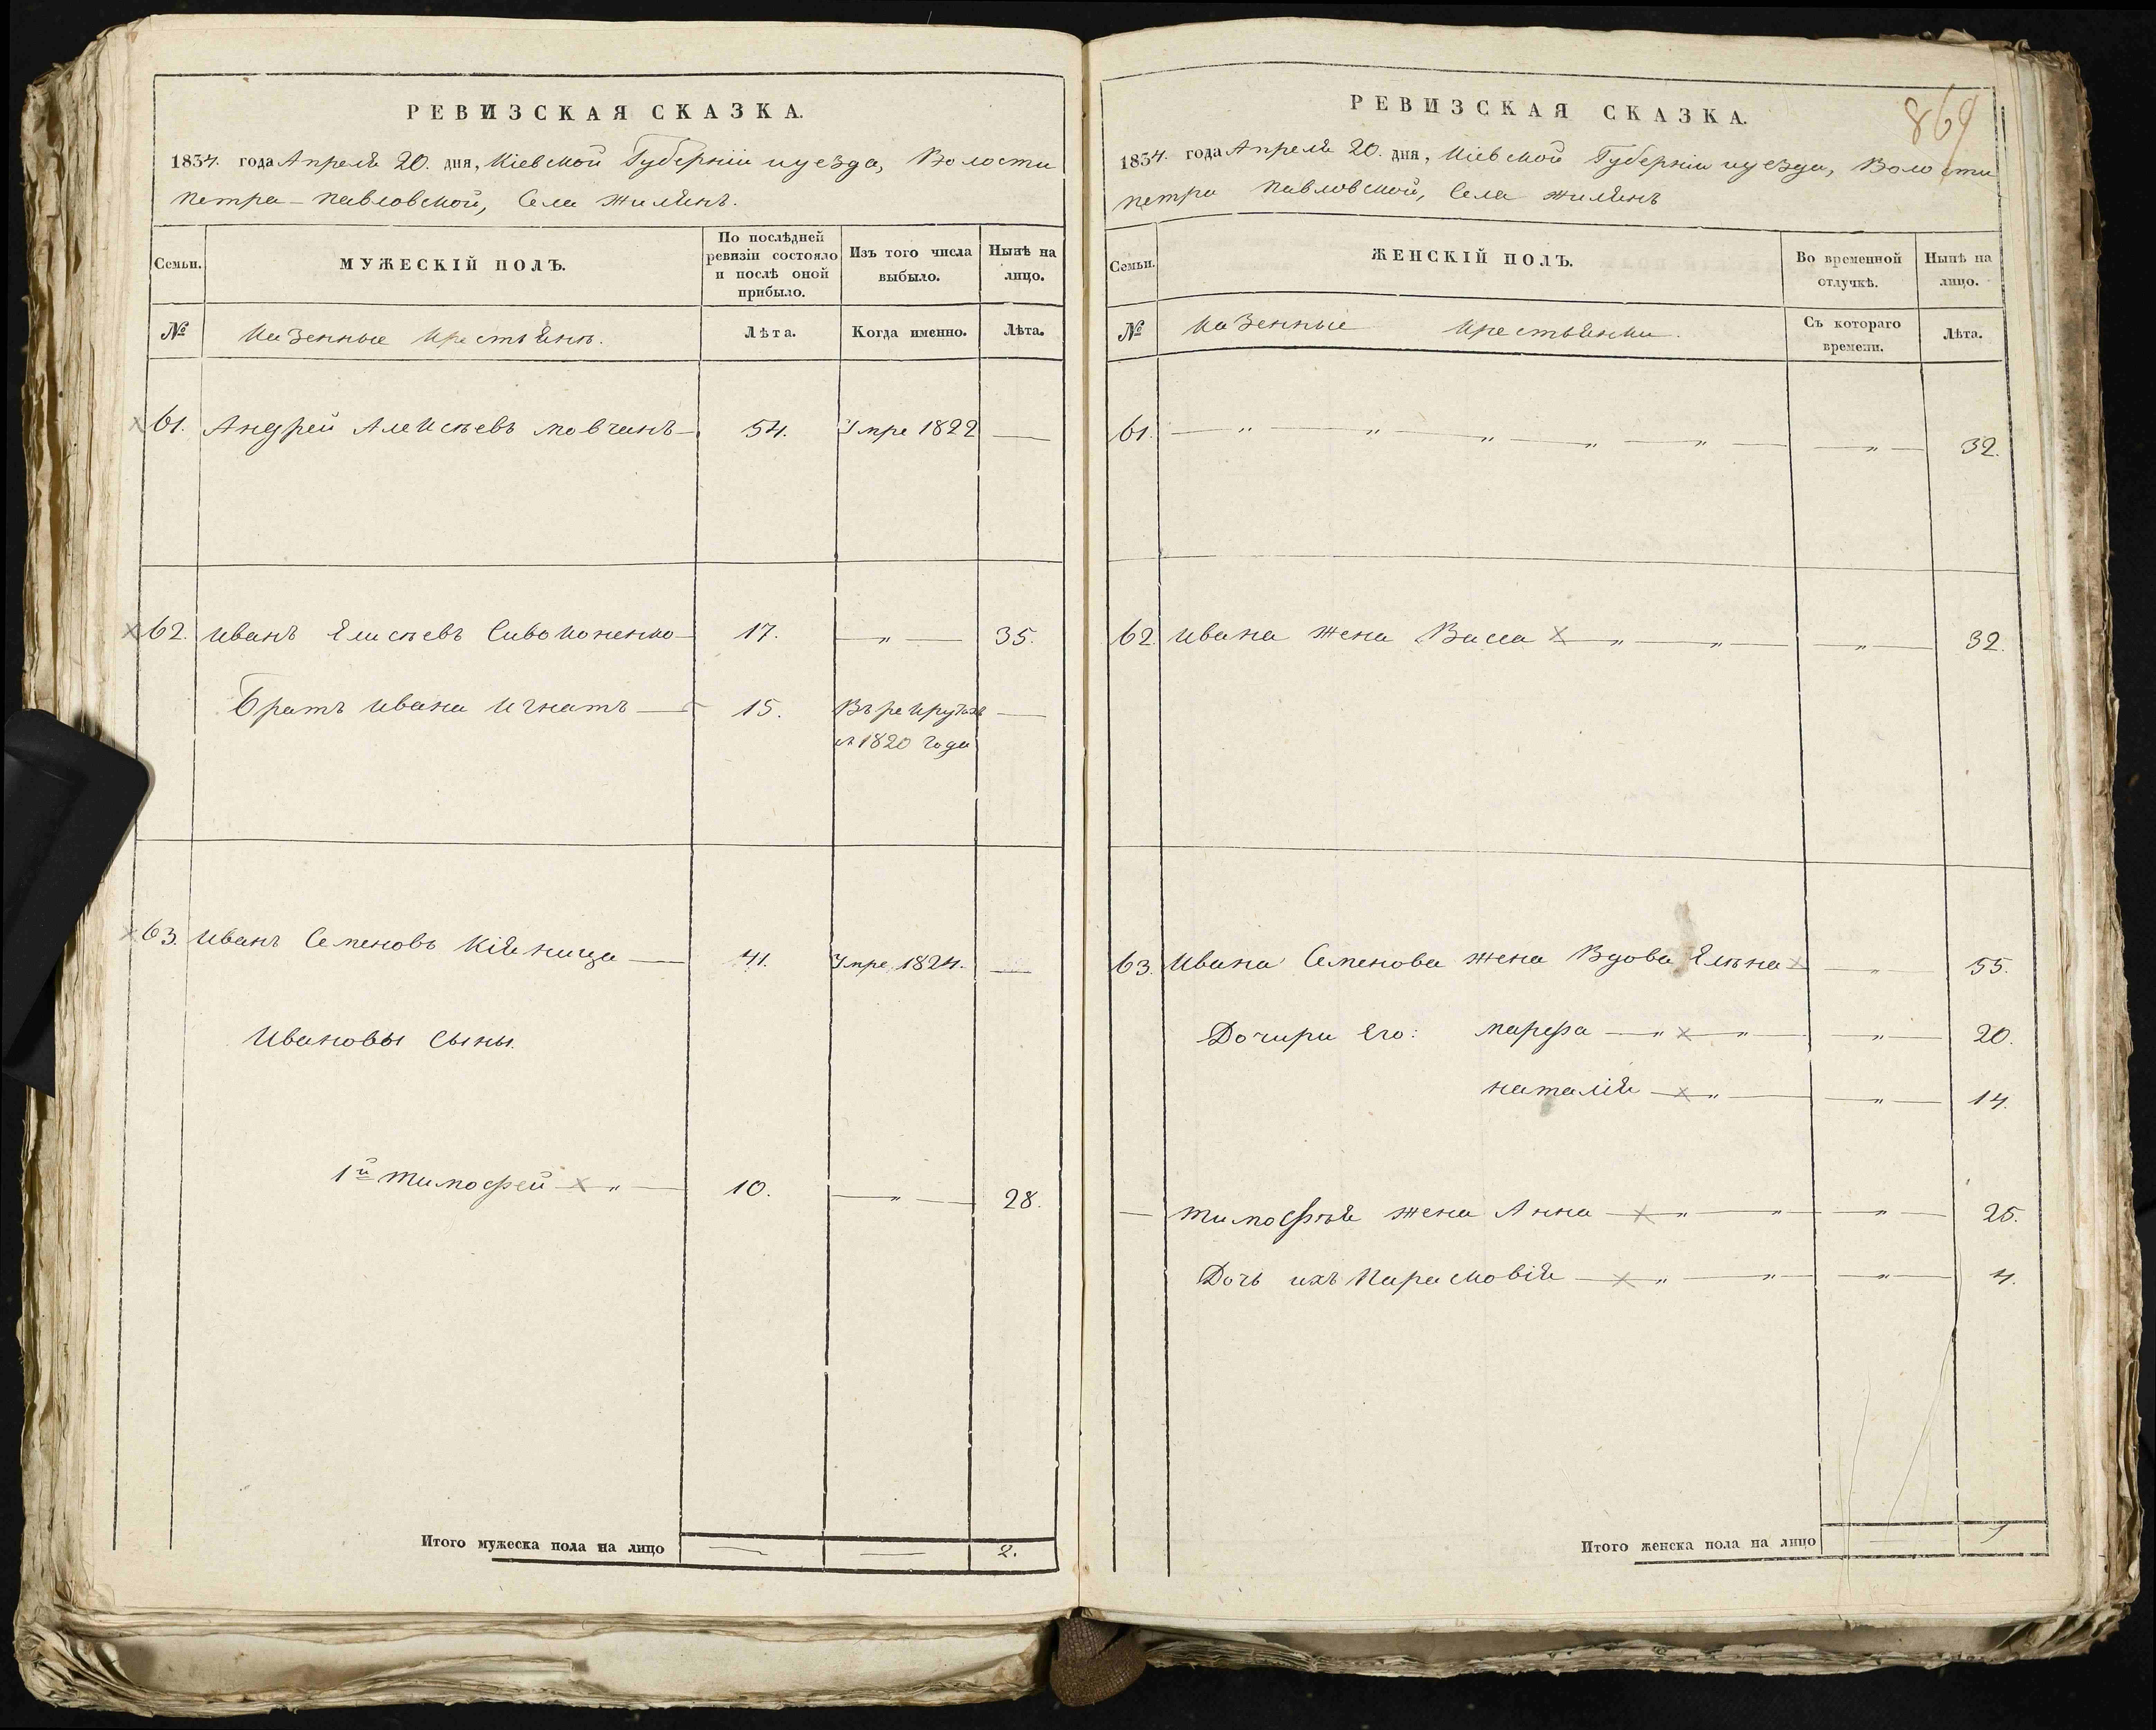 РЕВИЗСКАЯ СКАЗКА.
1834. года Апреля 20. дня, Кіевской Губерніи и уезда, Волости
Петра-Павловской, Села Жилянъ.
Семьи.
МУЖЕСКІЙ ПОЛЪ.
По послѣдней ревизіи состояло и послѣ оной прибыло.
Изъ того числа выбыло.
Нынѣ на лицо.
№
Казенные Крестьяне.
Лѣта.
Когда именно.
Лѣта.
61. Андрей Алексѣевъ Мовчанъ — 54. Умре 1822 —
62. Иванъ Елисѣевъ Сивоконенко — 17. — „ — 35.
Братъ Ивана Игнатъ — 15. Въ рекрутахъ —
съ 1820 года
63. Иванъ Семеновъ Кіяница — 41. Умре 1824. —
Ивановы Сыны.
1й Тимофей — х „ — 10. — „ — 28.
Итого мужеска пола на лицо — — 2.
869
РЕВИЗСКАЯ СКАЗКА.
1834. года Апреля 20. дня, Кіевской Губерніи и уезда, Волости
Петра Павловской, Села Жилянъ
Семьи.
ЖЕНСКІЙ ПОЛЪ.
Во временной отлучкѣ.
Нынѣ на лицо.
№
Казенные Крестьянки.
Съ котораго времени.
Лѣта.
61. — „ — „ — „ — „ — „ — — „ — 32.
62. Ивана жена Васса х — „ — „ — — „ — 32.
63. Ивана Семенова жена Вдова Елѣна х — „ — 55.
Дочири Его: Марфа — „ х „ — — „ — 20.
Наталія — х „ — — „ — 14.
— Тимофѣя жена Анна — х „ — „ — — „ — 25.
Дочь ихъ Парасковія — х „ — „ — — „ — 4.
Итого женска пола на лицо —